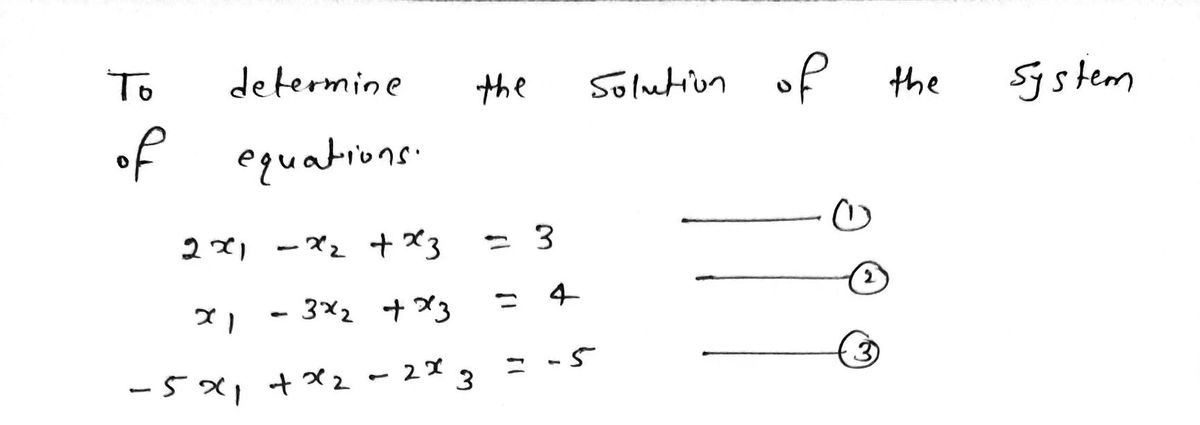 To determine the solution of the system
of equations.
2x₁ - x₂ + x₃ = 3 ——— ①
x₁ - 3x₂ + x₃ = 4 ——— ②
-5x₁ + x₂ - 2x₃ = -5 ——— ③